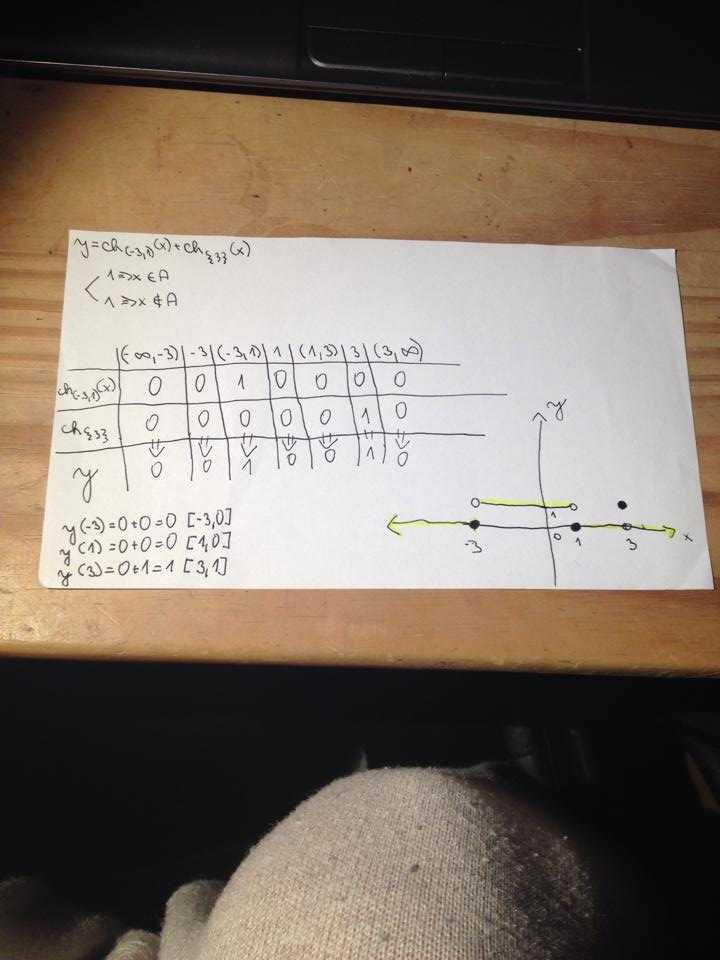 y=ch(-3,1)(x)+ch{3}(x)
1⇒x∈A
1⇒x∉A
(-∞,-3) -3 (-3,1) 1 (1,3) 3 (3,∞)
ch(-3,1)(x) 0 0 1 0 0 0 0
ch{3} 0 0 0 0 0 1 0
⇓ ⇓ ⇓ ⇓ ⇓ ⇓ ⇓
y 0 0 1 0 0 1 0
y(-3)=0+0=0 [-3,0]
y(1)=0+0=0 [1,0]
y(3)=0+1=1 [3,1]
y
1
-3 0 1 3 x